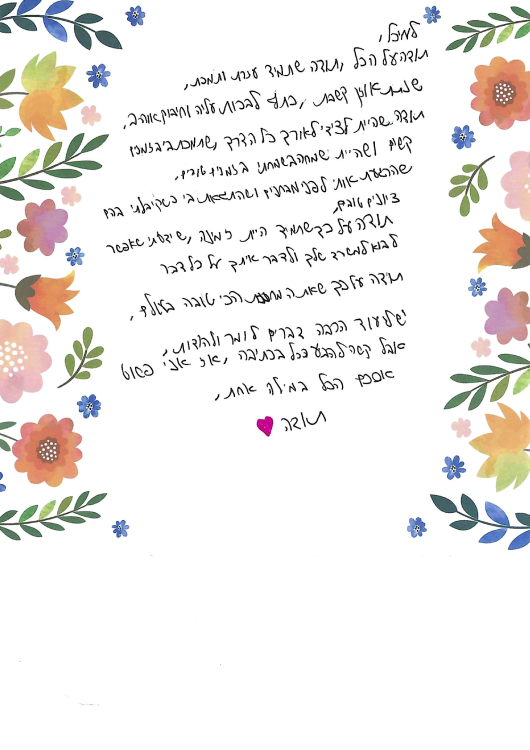 למיכל,
תודה על הכל, תודה שתמיד עזרת ותמכת,
שנתת אוזן קשבת, כתף לבכות עליה וחיבוק אוהב,
תודה שהיית לצידי לאורך כל הדרך, שתמכת בי בזמנים
קשים ושהיית שמחה בשבילי בזמנים טובים,
שהרגעת אותי לפני מבחנים ושהתגאת בי כשקיבלתי בהם
ציונים טובים,
תודה על כך שתמיד היית זמינה, שידעתי שאפשר
לבוא למשרד שלך ולדבר איתך על כל דבר
תודה על כך שאת המחנכת הכי טובה בעולם,
יש לי עוד הרבה דברים לומר ולהודות,
אבל קשה להביע הכל בכתיבה, אז אני פשוט
אסכם הכל במילה אחת,
תודה